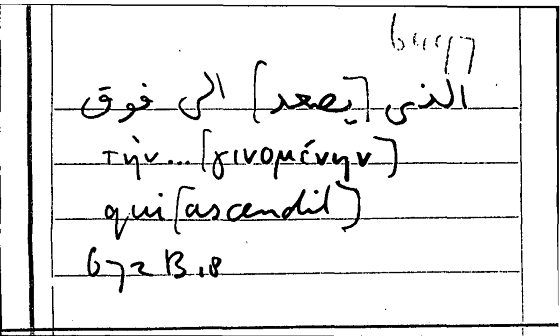 الذى [يصعد] الى فوق
τὴν...[γινομένην]
qui [ascendit]
672 B 18